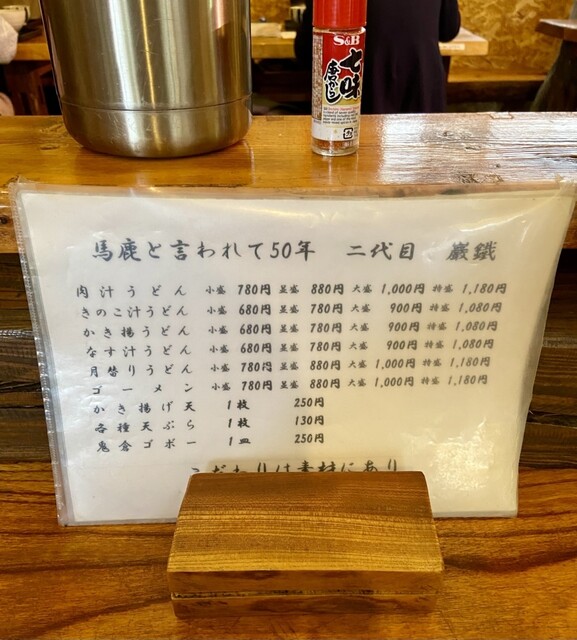 S&B
七味
唐からし
馬鹿と言われて50年 二代目 巌鐵
肉汁うどん 小盛 780円 並盛 880円 大盛 1,000円 特盛 1,180円
きのこ汁うどん 小盛 680円 並盛 780円 大盛 900円 特盛 1,080円
かき揚うどん 小盛 680円 並盛 780円 大盛 900円 特盛 1,080円
なす汁うどん 小盛 680円 並盛 780円 大盛 900円 特盛 1,080円
月替りうどん 小盛 780円 並盛 880円 大盛 1,000円 特盛 1,180円
ゴーメン 小盛 780円 並盛 880円 大盛 1,000円 特盛 1,180円
かき揚げ天 1枚 250円
各種天ぷら 1枚 130円
鬼倉ゴボー 1皿 250円
こだわりは素材にあり